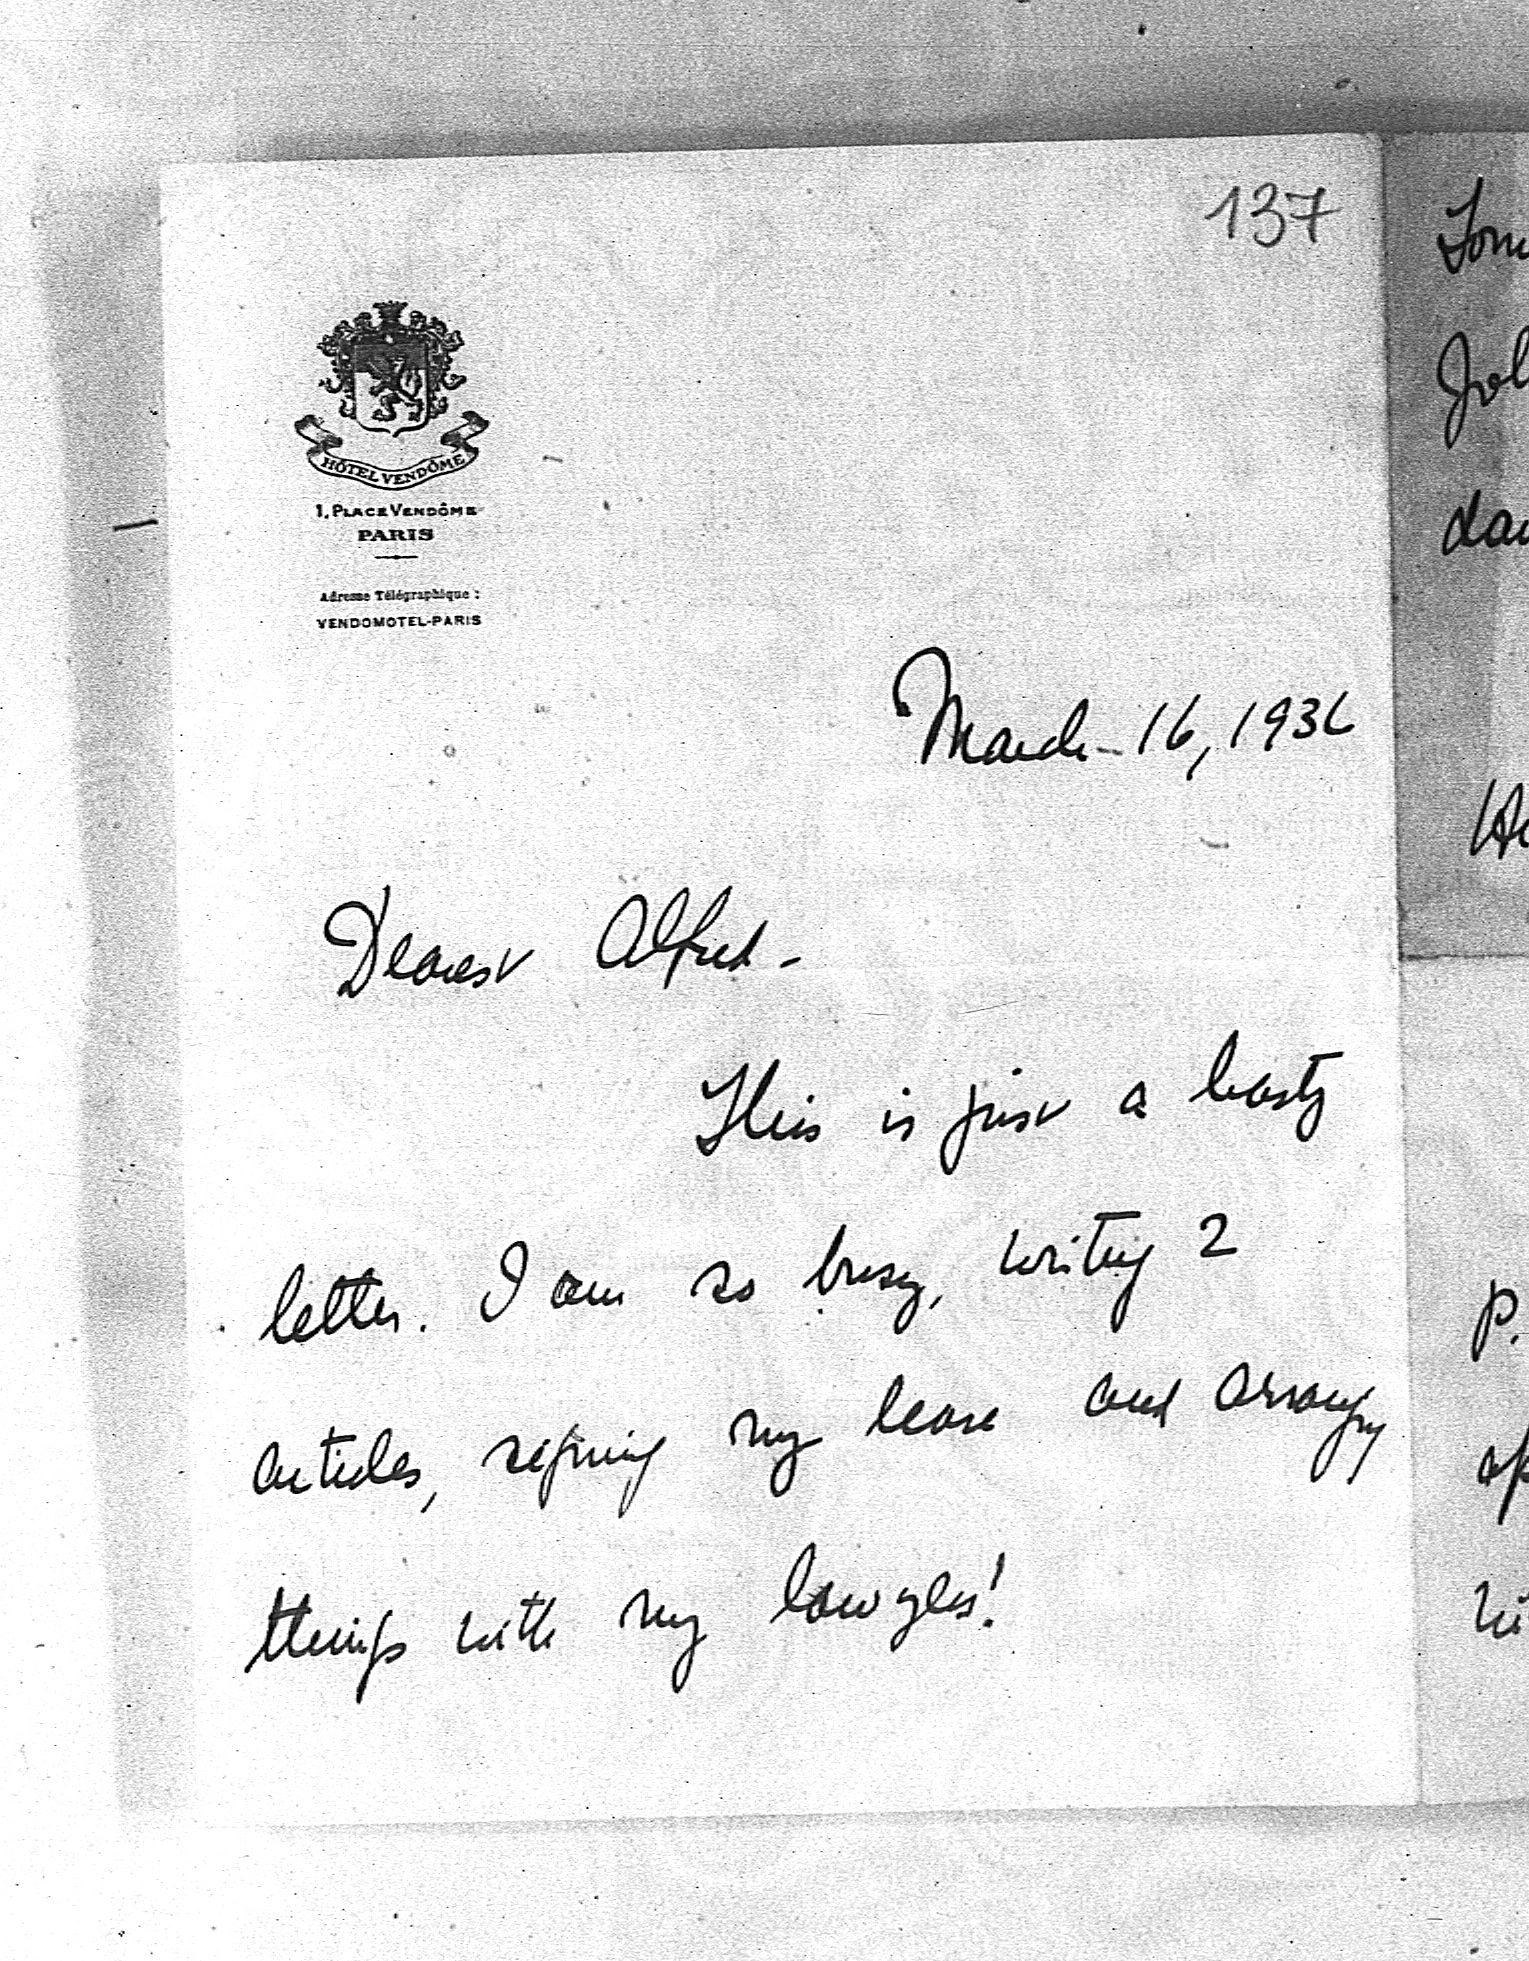 137
HÔTEL VENDÔME
1, PLACE VENDÔME
PARIS
Adresse Télégraphique :
VENDOMOTEL-PARIS
March 16, 1936
Dearest Alfred -
This is just a hasty
letter. I am so busy, writing 2
articles, signing my lease and arranging
things with my lawyers!
P.